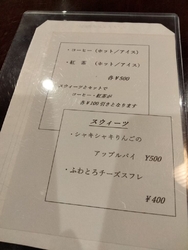 ・コーヒー（ホット／アイス）
・紅　茶　（ホット／アイス）
各¥500
スウィーツとセットで
コーヒー・紅茶が
各¥100引きとなります
スウィーツ
・シャキシャキりんごの
アップルパイ　¥500
・ふわとろチーズスフレ
¥400